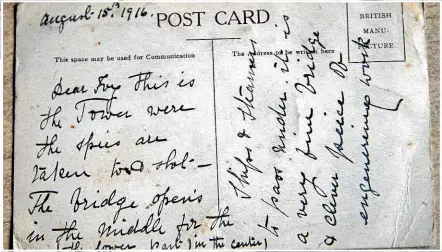 august 15th 1916.
POST CARD.
BRITISH
MANU-
FACTURE.
This space may be used for Communication
The Address to be written here
Dear Ivy This is
the Tower were
the spies are
taken to & shot —
The bridge opens
in the middle for the
the lower part (in the center)
Ships & Steamers
to pass under it is
a very fine bridge
& clever peice of
engenering work